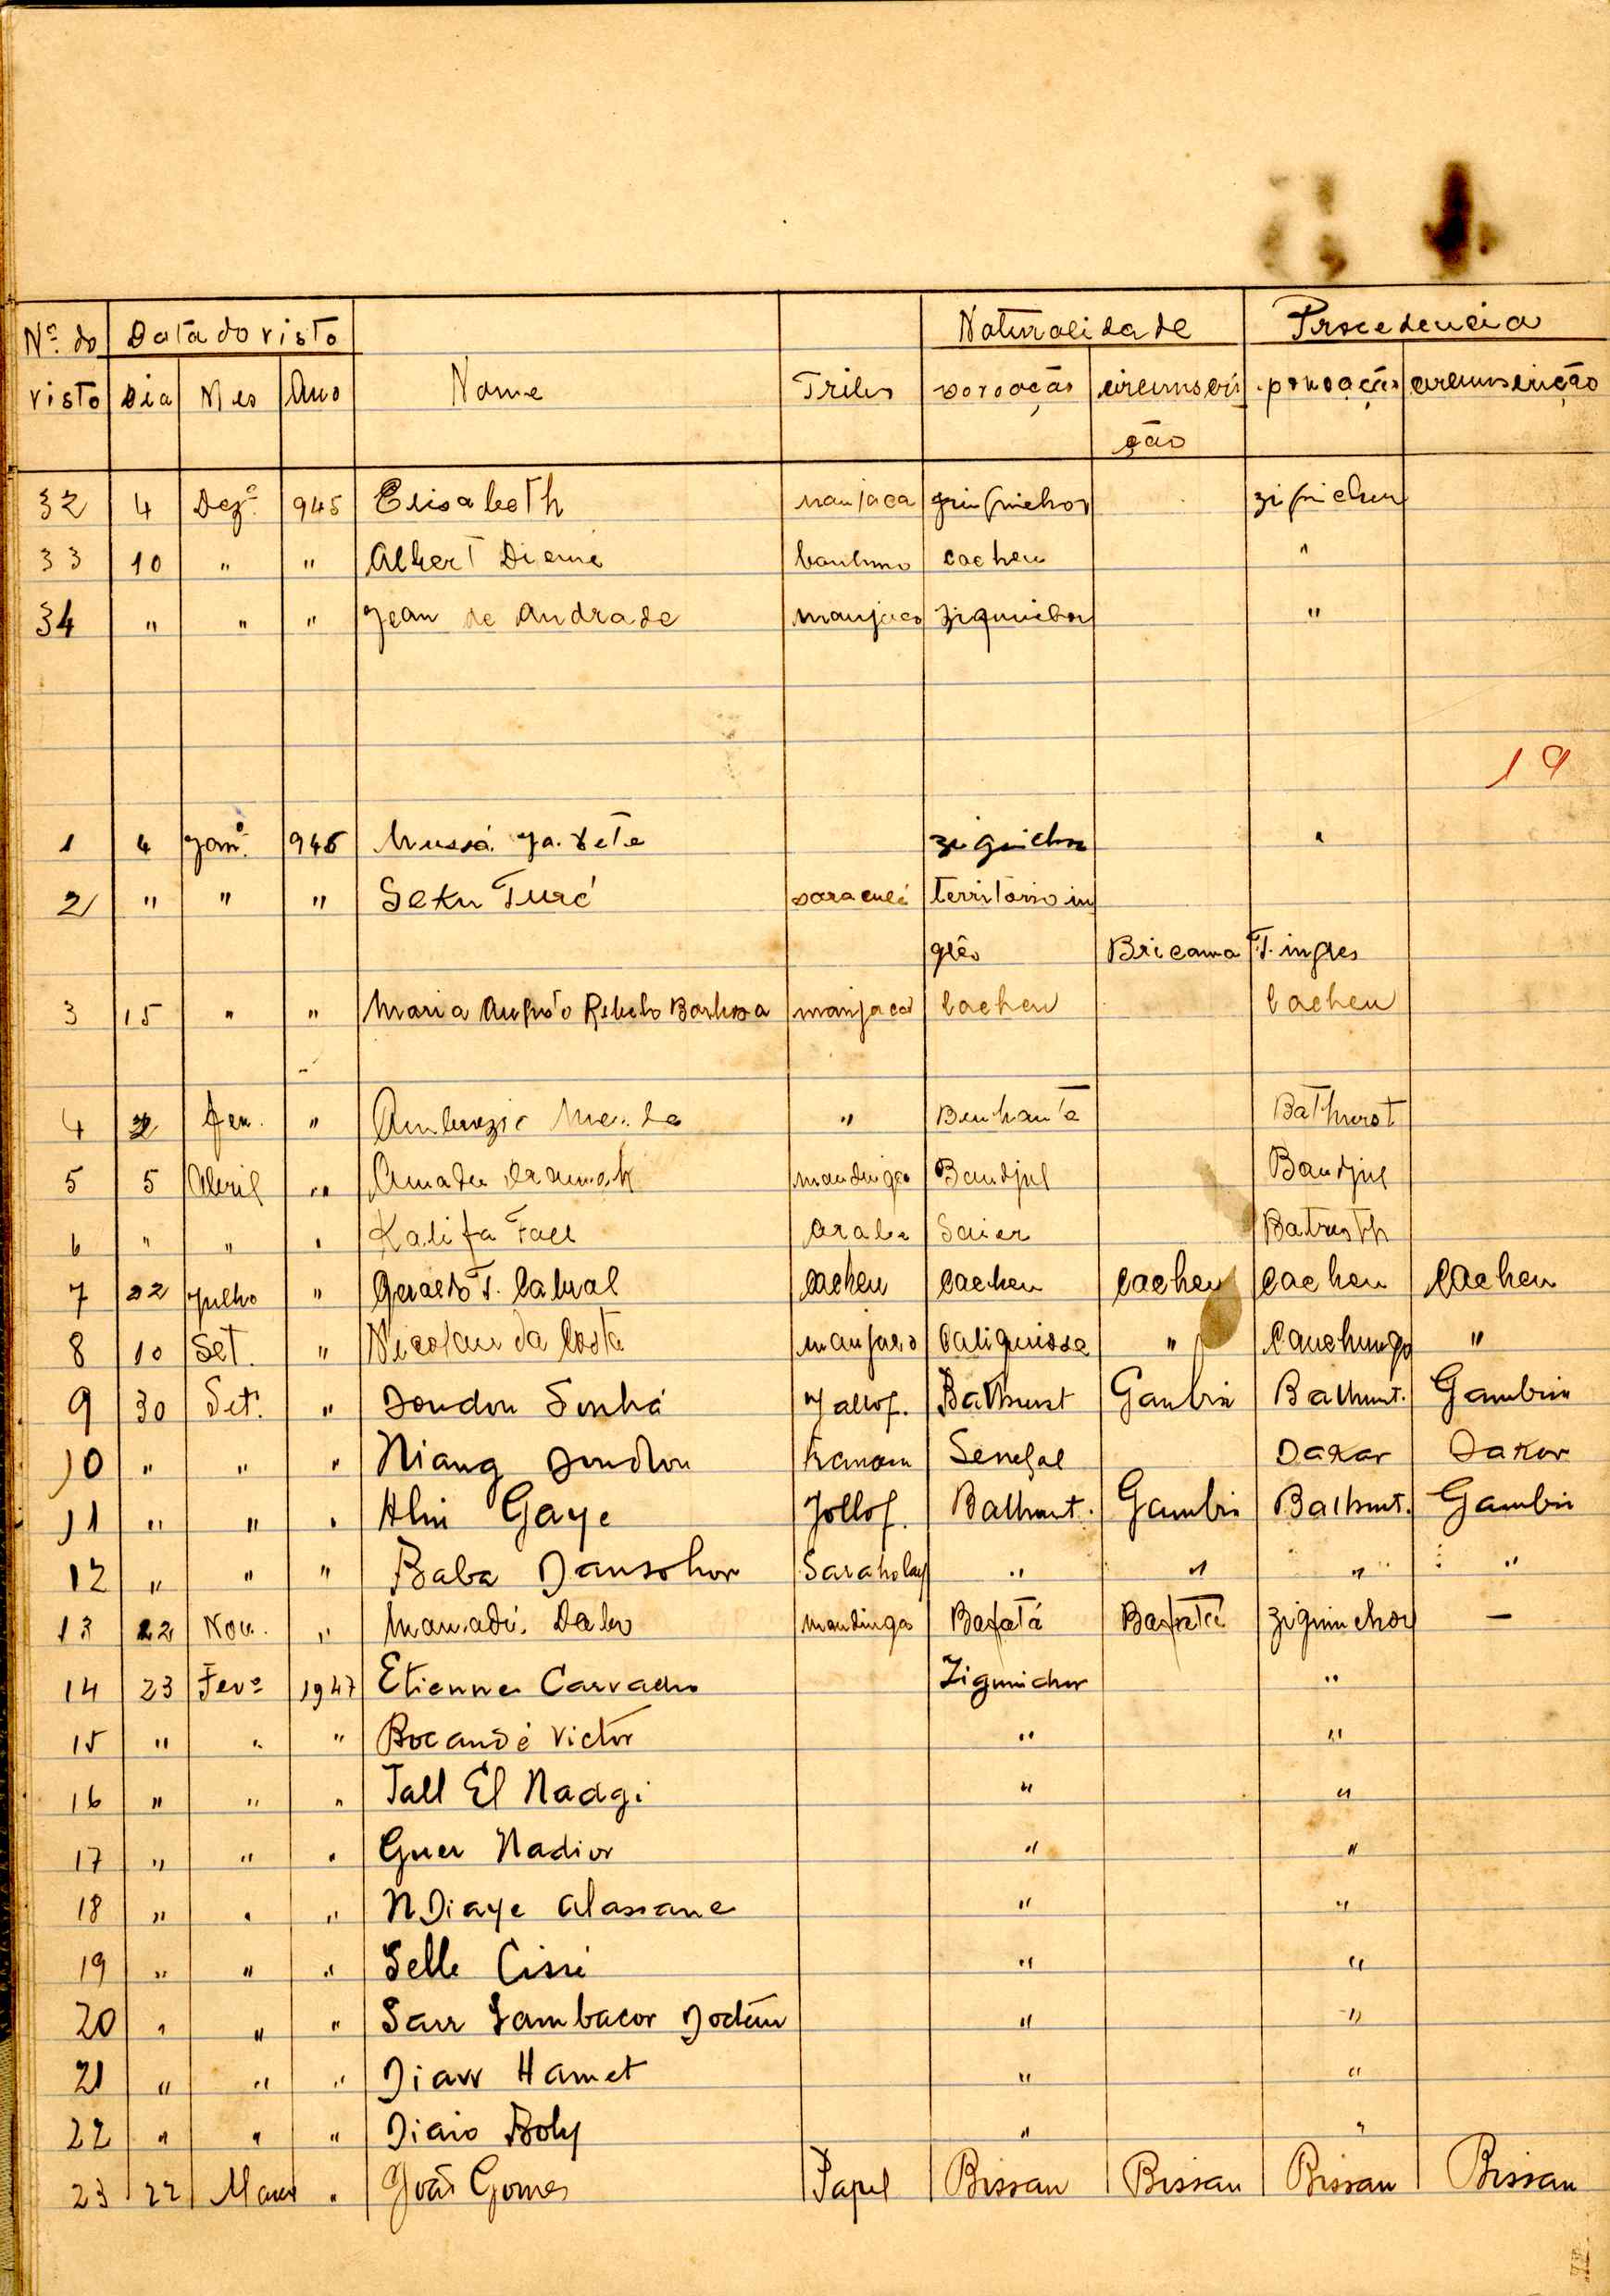 Nº do Data do visto Naturalidade Procedencia
visto Dia Mes Ano Nome Tribu povoação circunscri povoação circunscrição
ção
32 4 Dezº 945 Elisabeth manjaca ziguinchor
33 10 " " Albert Diemé cacheu "
34 " " " Jean de Andrade manjaco Ziguinchor "
19
1 4 Janº 946 Mussá ziguichor "
2 " " " Seku Turé saraculé territorio in
glês Bricama T. ingles
3 15 " " Maria Rebelo Barbosa manjaca Cacheu Cacheu
4 2 Fev. " " Bathurst
5 5 Abril " Amadu mandinga Bandjul Bandjul
6 " " " Kalifa Fall arabe Batursth
7 22 Julho " Geraldo T. Cabral cacheu Cacheu cacheu Cacheu Cacheu
8 10 Set. " Nicolau da Costa manjaco Caliquisse " Canchungo "
9 30 Set. " Doudou Sonhá Jallof. Bathurst Gambia Bathurst. Gambia
10 " " " Niang Doudou Senegal Dakar Dakar
11 " " " Gaye Jollof. Bathurst. Gambia Bathurst. Gambia
12 " " " Baba Dansohor Saraholay " " " "
13 22 Nov. " Mamadú Dabo mandinga Bafatá Bafatá ziguinchor —
14 23 Fevº 1947 Etienne Carvalho Ziguinchor "
15 " " " Bocandé Victor " "
16 " " " Tall El Hadgi " "
17 " " " Guer Nadior " "
18 " " " NDiaye Alassane " "
19 " " " Selle Cissé " "
20 " " " Sarr Sambacor " "
21 " " " Diaw Hamet " "
22 " " " Boly " "
23 22 " João Gomes Papel Bissau Bissau Bissau Bissau